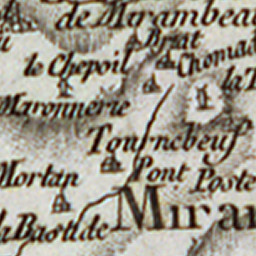 de Mirambeau
Briat
le Chepoil
Chomad
la
Maronnerie
Tournebeuf
Pont Poste
Mortan
la Bastide
Mirar